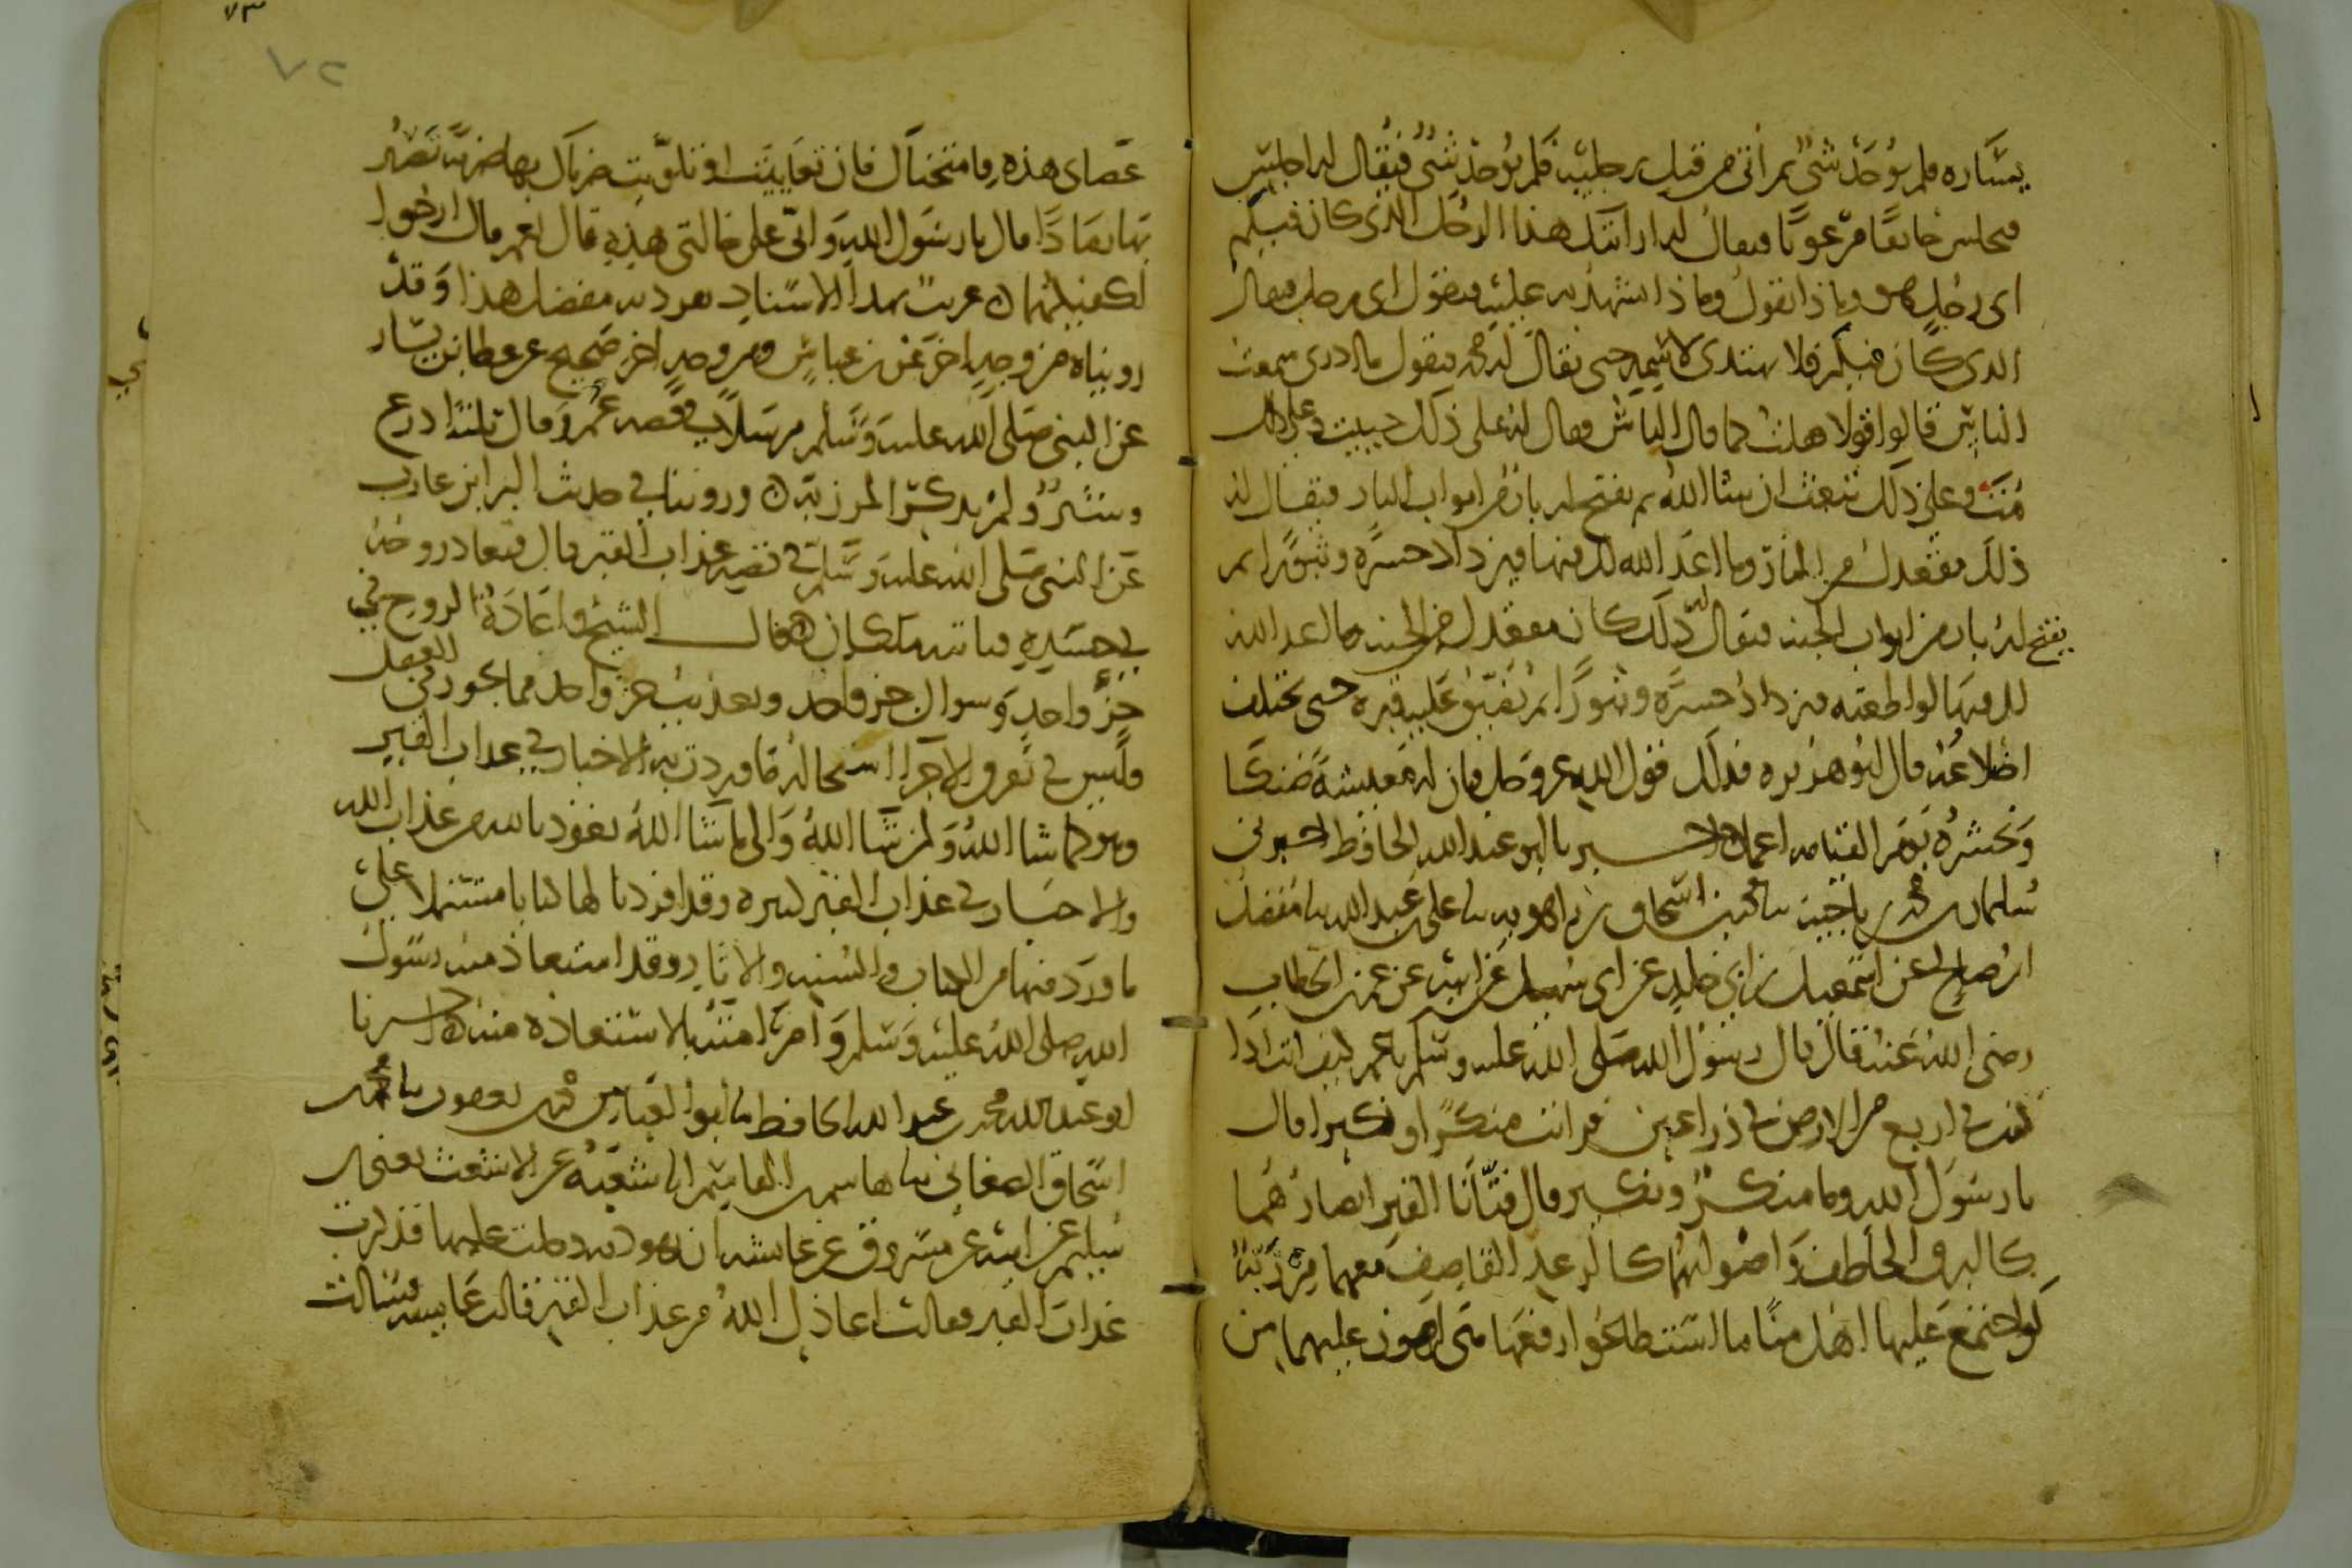 يساره فلم يوجد شي ثم اتي من قبل رجليه فلم يوجد شي فيقال له اجلس
فيجلس خايفا مرعوبا فيقال له ارايتك هذا الرجل الذي كان فيكم
اي رجل هو وماذا تقول وماذا تشهد به عليه فيقول اي رجل فيقال
الذي كان فيكم فلا يهتدي لاسمه حتى يقال له محمد فيقول ما ادري سمعت
الناس قالوا قولا فقلت كما قال الناس فقال له على ذلك حييت وعلى ذلك
مت وعلى ذلك تبعث ان شا الله ثم يفتح له باب من ابواب النار فيقال له
ذلك مقعدك من النار وما اعد الله لك فيها فيزداد حسرة وثبورا ثم
يفتح له باب من ابواب الجنة فيقال له ذلك كان مقعدك من الجنة وما اعد الله
لك فيها لو اطعته فيزداد حسرة وثبورا ثم يضيق عليه قبره حتى تختلف
اضلاعه قال ابو هريره فذلك قول الله عز وجل فان له معيشة ضنكا
ونحشره يوم القيامه اعمى اخبرنا ابو عبد الله الحافظ اخبرني
سليمان بن محمد بن ناجية محمد بن اسحاق بن راهويه علي بن عبد الله مفضل
ابن صالح عن اسمعيل بن ابي خالد عن ابي سهيل عن ابيه عن عمر بن الخطاب
رضي الله عنه قال قال رسول الله صلى الله عليه وسلم يا عمر كيف انت اذا
كنت في اربع من الارض في ذراعين فرايت منكرا ونكيرا قال
يا رسول الله وما منكر ونكير قال فتانا القبر ابصارهما
كالبرق الخاطف واصواتهما كالرعد القاصف معهما مرزبة
لو اجتمع عليها اهل منا ما استطاعوا رفعها هي اهون عليهما من
٧٣
٧٢
عصاي هذه فامتحناك فان تعاييت او تلويت ضرباك بها ضربة تصير
بها رمادا قال يا رسول الله واني على حالتي هذه قال نعم قال ارجوا
اكفيكهما غريب بهذا الاسناد تفرد به مفضل هذا وقد
رويناه من وجه اخر عن ابن عباس ومن وجه اخر صحيح عن عطا بن يسار
عن النبي صلى الله عليه وسلم مرسلا في قصه عمر وقال ثلثة اذرع
وشبر ولم يذكر المرزبة وروينا في حديث البرا بن عازب
عن النبي صلى الله عليه وسلم في قصه عذاب القبر قال فتعاد روحه
في جسده فياتيه ملكان قال الشيخ واعادة الروح في
جزء واحد وسوال جزء واحد وتعذيب جزء واحد مما يجوز في العقل
وليس في تفرق الاجزا استحالة ما وردت به الاخبار في عذاب القبر
وهو كما شا الله ولمن شا الله والى ما شا الله نعوذ بالله من عذاب الله
والاخبار في عذاب القبر كثيره وقد افردنا لها كتابا مشتملا على
ما ورد فيها من الكتاب والسنه والاثار وقد استعاذ منه رسول
الله صلى الله عليه وسلم وامر امته بالاستعاذه منه اخبرنا
ابو عبد الله محمد بن عبد الله الحافظ ابو العباس محمد بن يعقوب محمد بن
اسحاق الصغاني هاشم بن القاسم شعبة عن الاشعث يعني بن
سليم عن ابيه عن مسروق عن عايشه ان يهوديه دخلت عليها فذكرت
عذاب القبر فقالت اعاذك الله من عذاب القبر قالت عايشه فسالت